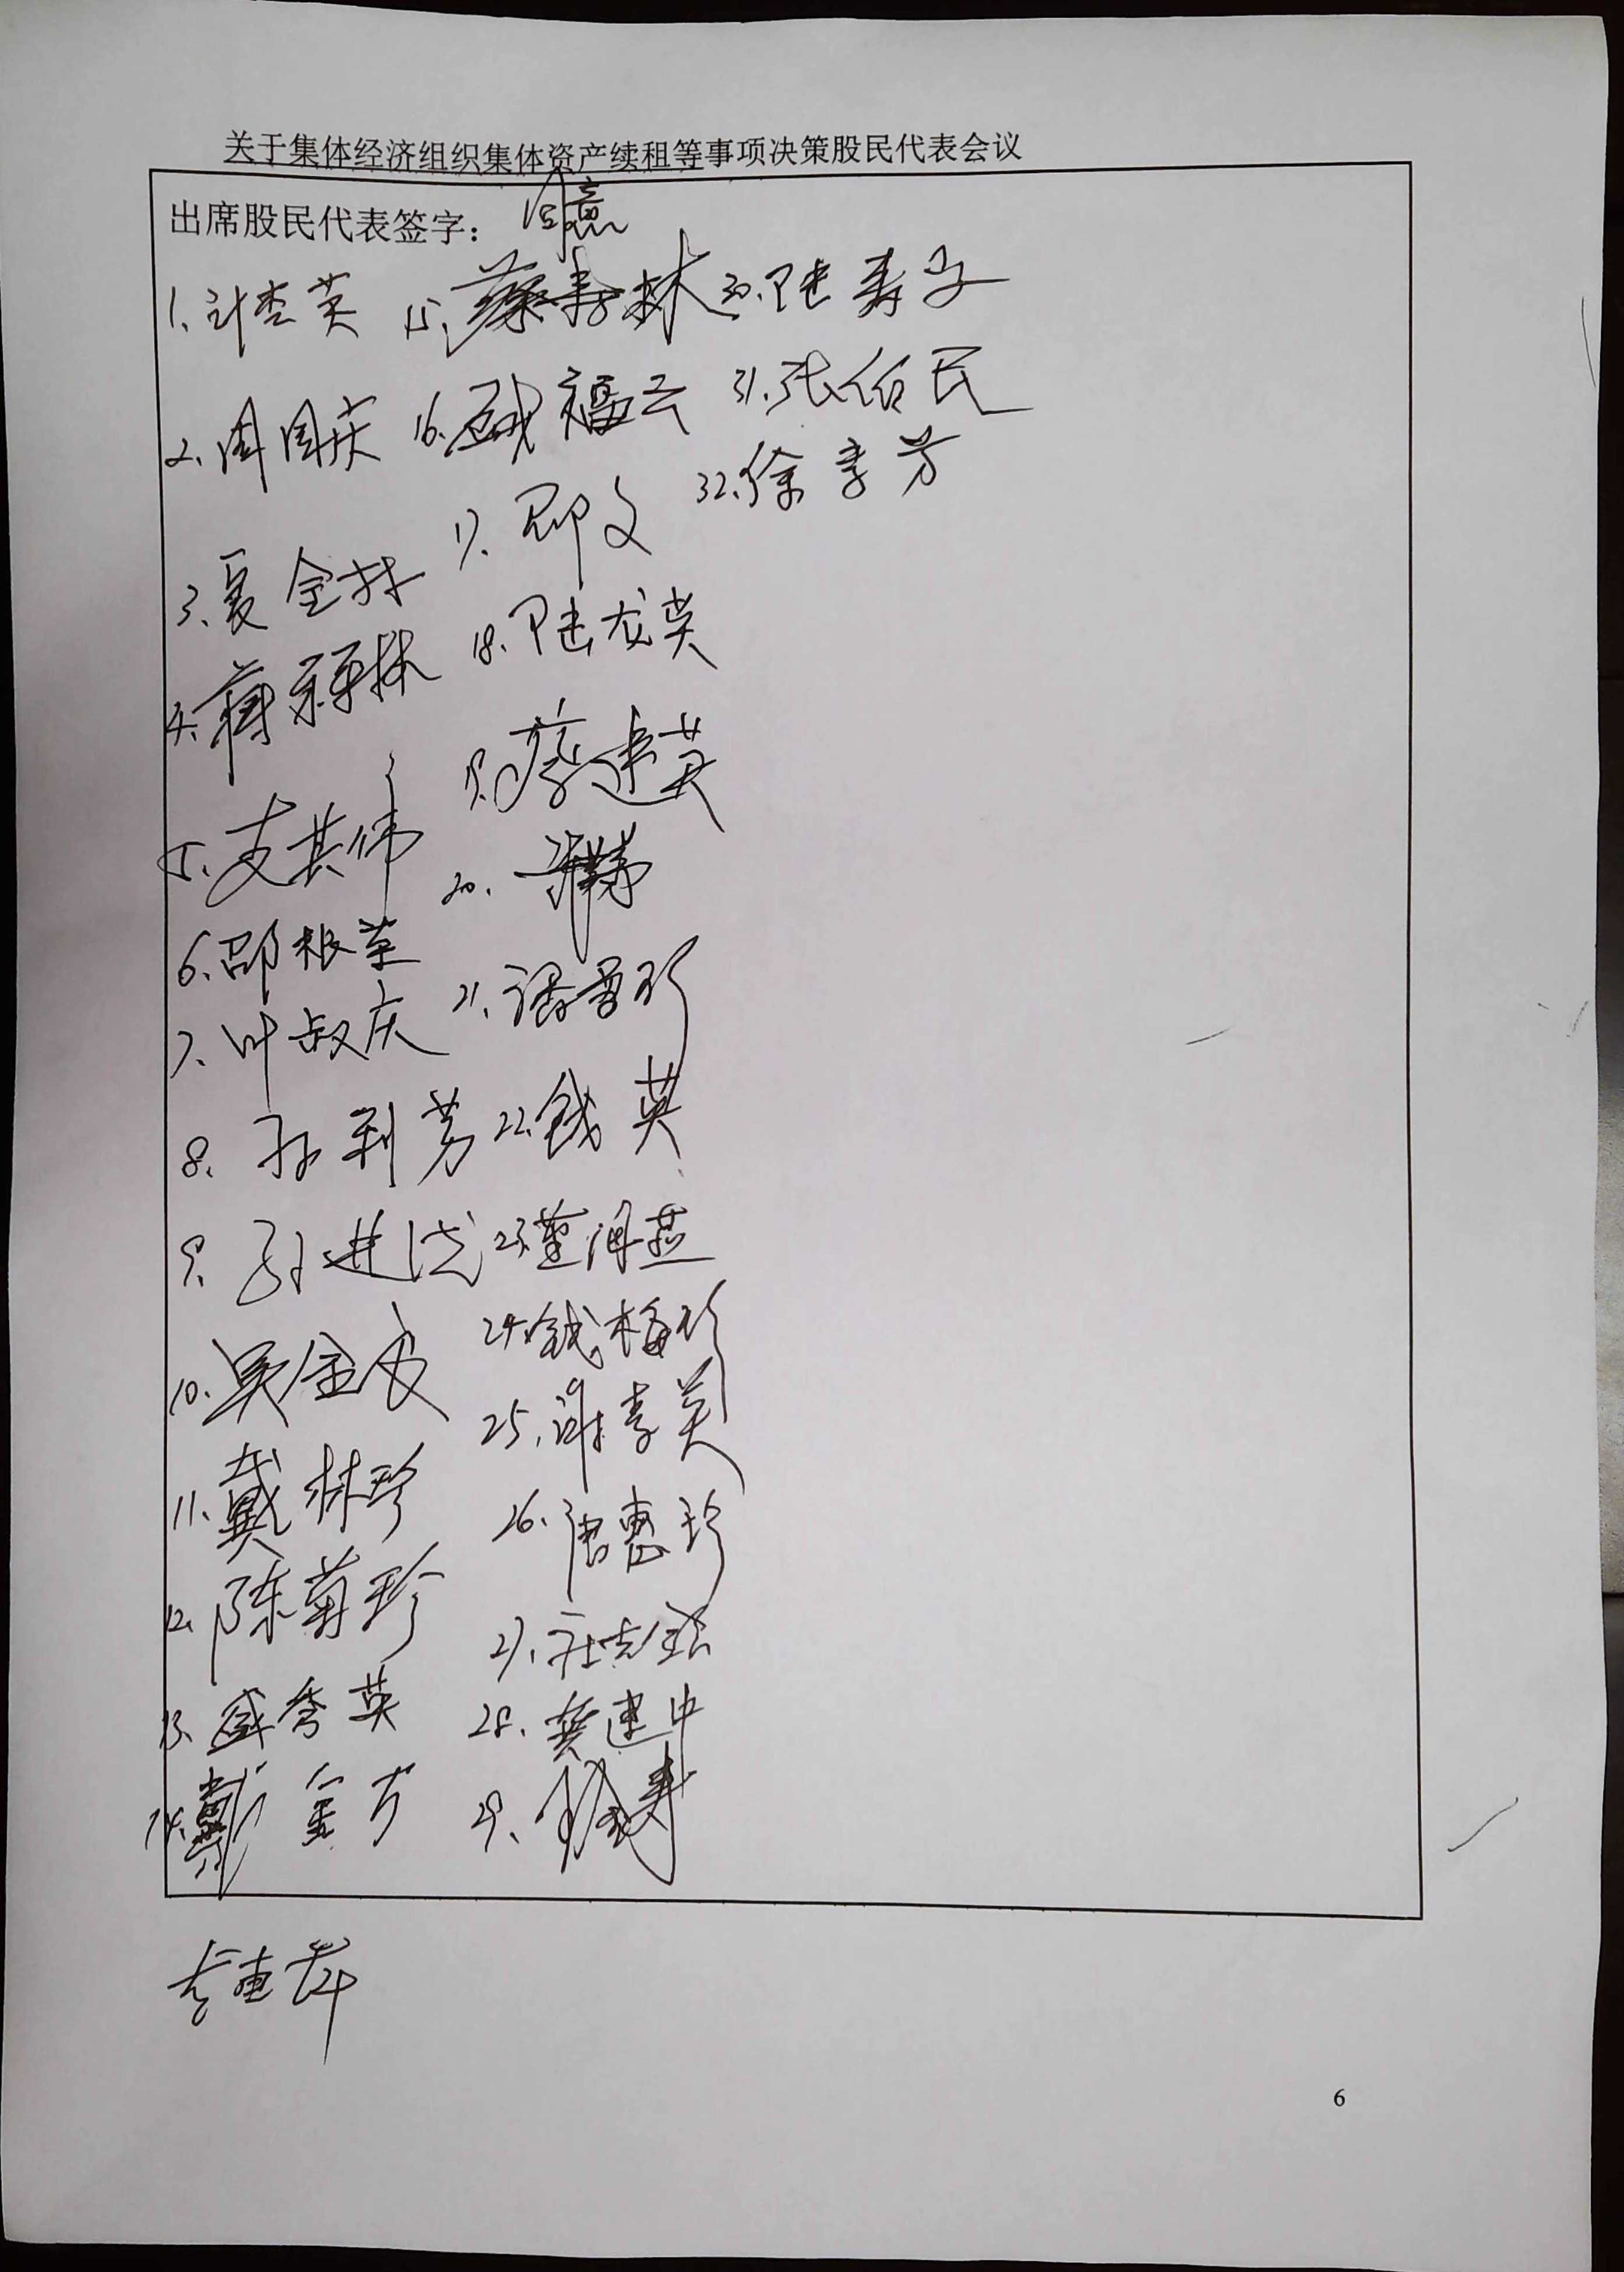 关于集体经济组织集体资产续租等事项决策股民代表会议
出席股民代表签字：
1、计杏英
2、周国庆
3、夏金林
4、蒋林
5、支其伟
6、邵根荣
7、叶叔庆
8、孙利芳
9、孙进
10、吴金
11、戴林珍
12、陈菊珍
13、盛秀英
14、戴金芳
15、蔡寿林
16、戚福云
17、邵文
18、陆龙英
19、蔡建英
20、
21、潘雪珍
22、钱英
23、董海燕
24、钱梅珍
25、谢李英
26、唐惠珍
27、
28、龚建中
29、
30、陆寿子
31、张伯民
32、徐李芳
6